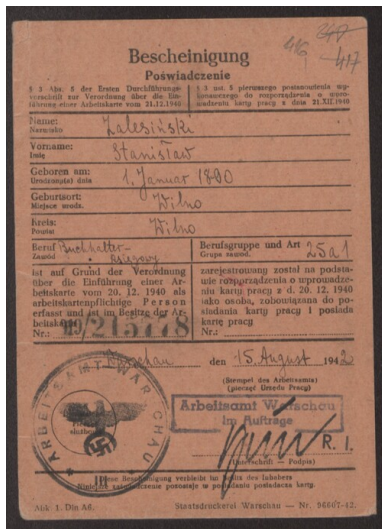 417
Bescheinigung
Poświadczenie
§ 3 Abs. 5 der Ersten Durchführungs-
vorschrift zur Verordnung über die Ein-
führung einer Arbeitskarte vom 21.12.1940
§ 3 ust. 5 pierwszego postanowienia wy-
konawczego do rozporządzenia o wpro-
wadzeniu karty pracy z dnia 21.XII.1940
Name: Zalesiński
Nazwisko
Vorname: Stanisław
Imię
Geboren am: 1. Januar 1890
Urodzony(a) dnia
Geburtsort: Wilno
Miejsce urodz.
Kreis: Wilno
Powiat
Beruf Buchhalter-
Zawód księgowy
Berufsgruppe und Art 25a1
Grupa zawod.
ist auf Grund der Verordnung
über die Einführung einer Ar-
beitskarte vom 20. 12. 1940 als
arbeitskartenpflichtige Person
erfasst und ist im Besitze der Ar-
beitskarte
Nr.: /215778
zarejestrowany został na podsta-
wie rozporządzenia o wprowadze-
niu karty pracy z d. 20. 12. 1940
jako osoba, zobowiązana do po-
siadania karty pracy i posiada
kartę pracy
Nr.:
Warschau den 15. August 1942
(Stempel des Arbeitsamts)
(pieczęć Urzędu Pracy)
ARBEITSAMT WARSCHAU
Arbeitsamt Warschau
Im Auftrage
R. I.
(Unterschrift — Podpis)
Diese Bescheinigung verbleibt im Besitz des Inhabers
Niniejsze zaświadczenie pozostaje w posiadaniu posiadacza karty.
Abk. 1. Din A6. Staatsdruckerei Warschau — Nr. 96667-42.